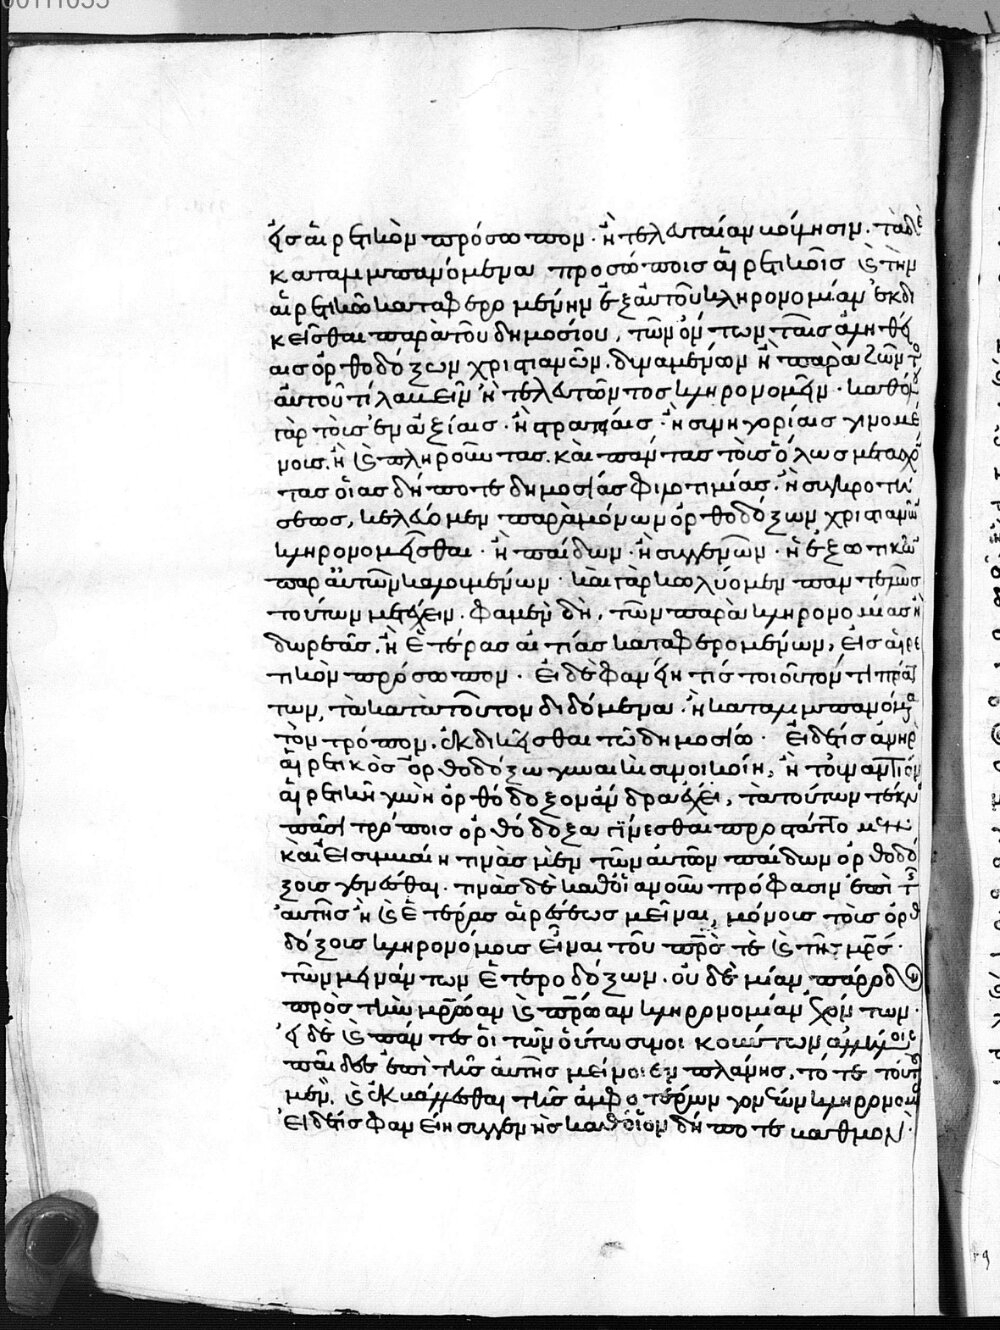 εἰς αἱρετικὸν πρόσωπον. ἢ τελευταίαν κοίμησιν. τὰ δὲ
καταλιμπανόμενα προσώποις αἱρετικοῖς καὶ τὴν
αἱρετικῶ καταφερομένην ἐξ αὐτοῦ κληρονομίαν ἐκδι
κεῖσθαι παρὰ τοῦ δημοσίου, τῶν ὄντων ταῖς ἀληθεί
αις ὀρθοδόξων χριστιανῶν. δυναμένων ἢ παρὰ ζῶντο
αὐτοῦ τί λαβεῖν ἢ τελευτῶντος κληρονομεῖν. καθὸ
γὰρ τοῖς ἐν ἀξίαις. ἢ στρατείαις. ἢ συνηγορίαις γινομέ
νοις. ἢ καὶ πληροῦντας. καὶ πάντας τοὺς ὅλως μετασχόν
τας οἵας δήποτε δημοσίας φιλοτιμίας. ἢ συγκροτή
σεως, κελεύομεν παρὰ μόνων ὀρθοδόξων χριστιανῶν
κληρονομεῖσθαι. ἢ παίδων. ἢ συγγενῶν. ἢ ἐξωτικῶν
παρ' αὐτῶν καλουμένων. καὶ γὰρ κωλύομεν παντελῶς
τούτων μετέχειν. φαμὲν δὴ, τῶν παρὰ κληρονομίας ἢ
δωρεᾶς. ἢ ἑτέρας αἰτίας καταφερομένων, εἰς αἱρε
τικὸν πρόσωπον. εἰ δὲ φανείη τίς τοιοῦτόν τι πράτ
των, τὰ κατὰ τοῦτον διδόμενα. ἢ καταλιμπανόμενα
τὸν τρόπον. ἐκδικεῖσθαι τῶ δημοσίω. εἰ δέ τις ἀνὴρ
αἱρετικὸς ὀρθοδόξω γυναικὶ συνοικοίη, ἢ τοὐναντίον
αἱρετικὴ γυνὴ ὀρθόδοξον ἄνδρα ἔχει, τὰ τούτων τέκνα
πᾶσι τρόποις ὀρθόδοξα γίνεσθαι προστάττομεν.
καὶ εἰ συμβαίη τινὰς μὲν τῶν αὐτῶν παίδων ὀρθοδό
ξοις γενέσθαι. τινὰς δὲ καθ' οἱανοῦν πρόφασιν ἐπὶ τῆς
αὐτῆς ἢ καὶ ἑτέρας αἱρέσεως μεῖναι, μόνοις τοῖς ὀρθο
δόξοις κληρονόμοις εἶναι τοῦ πρς τὲ καὶ τῆς μρς.
τῶν μεινάντων ἑτεροδόξων. οὐδὲ μίαν πάροδον
πρὸς τὴν μρώαν καὶ πρώαν κληρονομίαν ἐχόντων.
εἰ δὲ καὶ πάντες οἱ τῶν οὕτω συνοικούντων ἀλλήλοις
παῖδες ἐπὶ τῆς αὐτῆς μείνοιεν πλάνης, τότε τού
μὲν, καὶ ἐκβάλλεσθαι τῆς ἀμφοτέρων γονέων κληρονομ
εἰ δέ τις φανείη συγγενὴς καθ' οἷον δήποτε βαθμὸν.